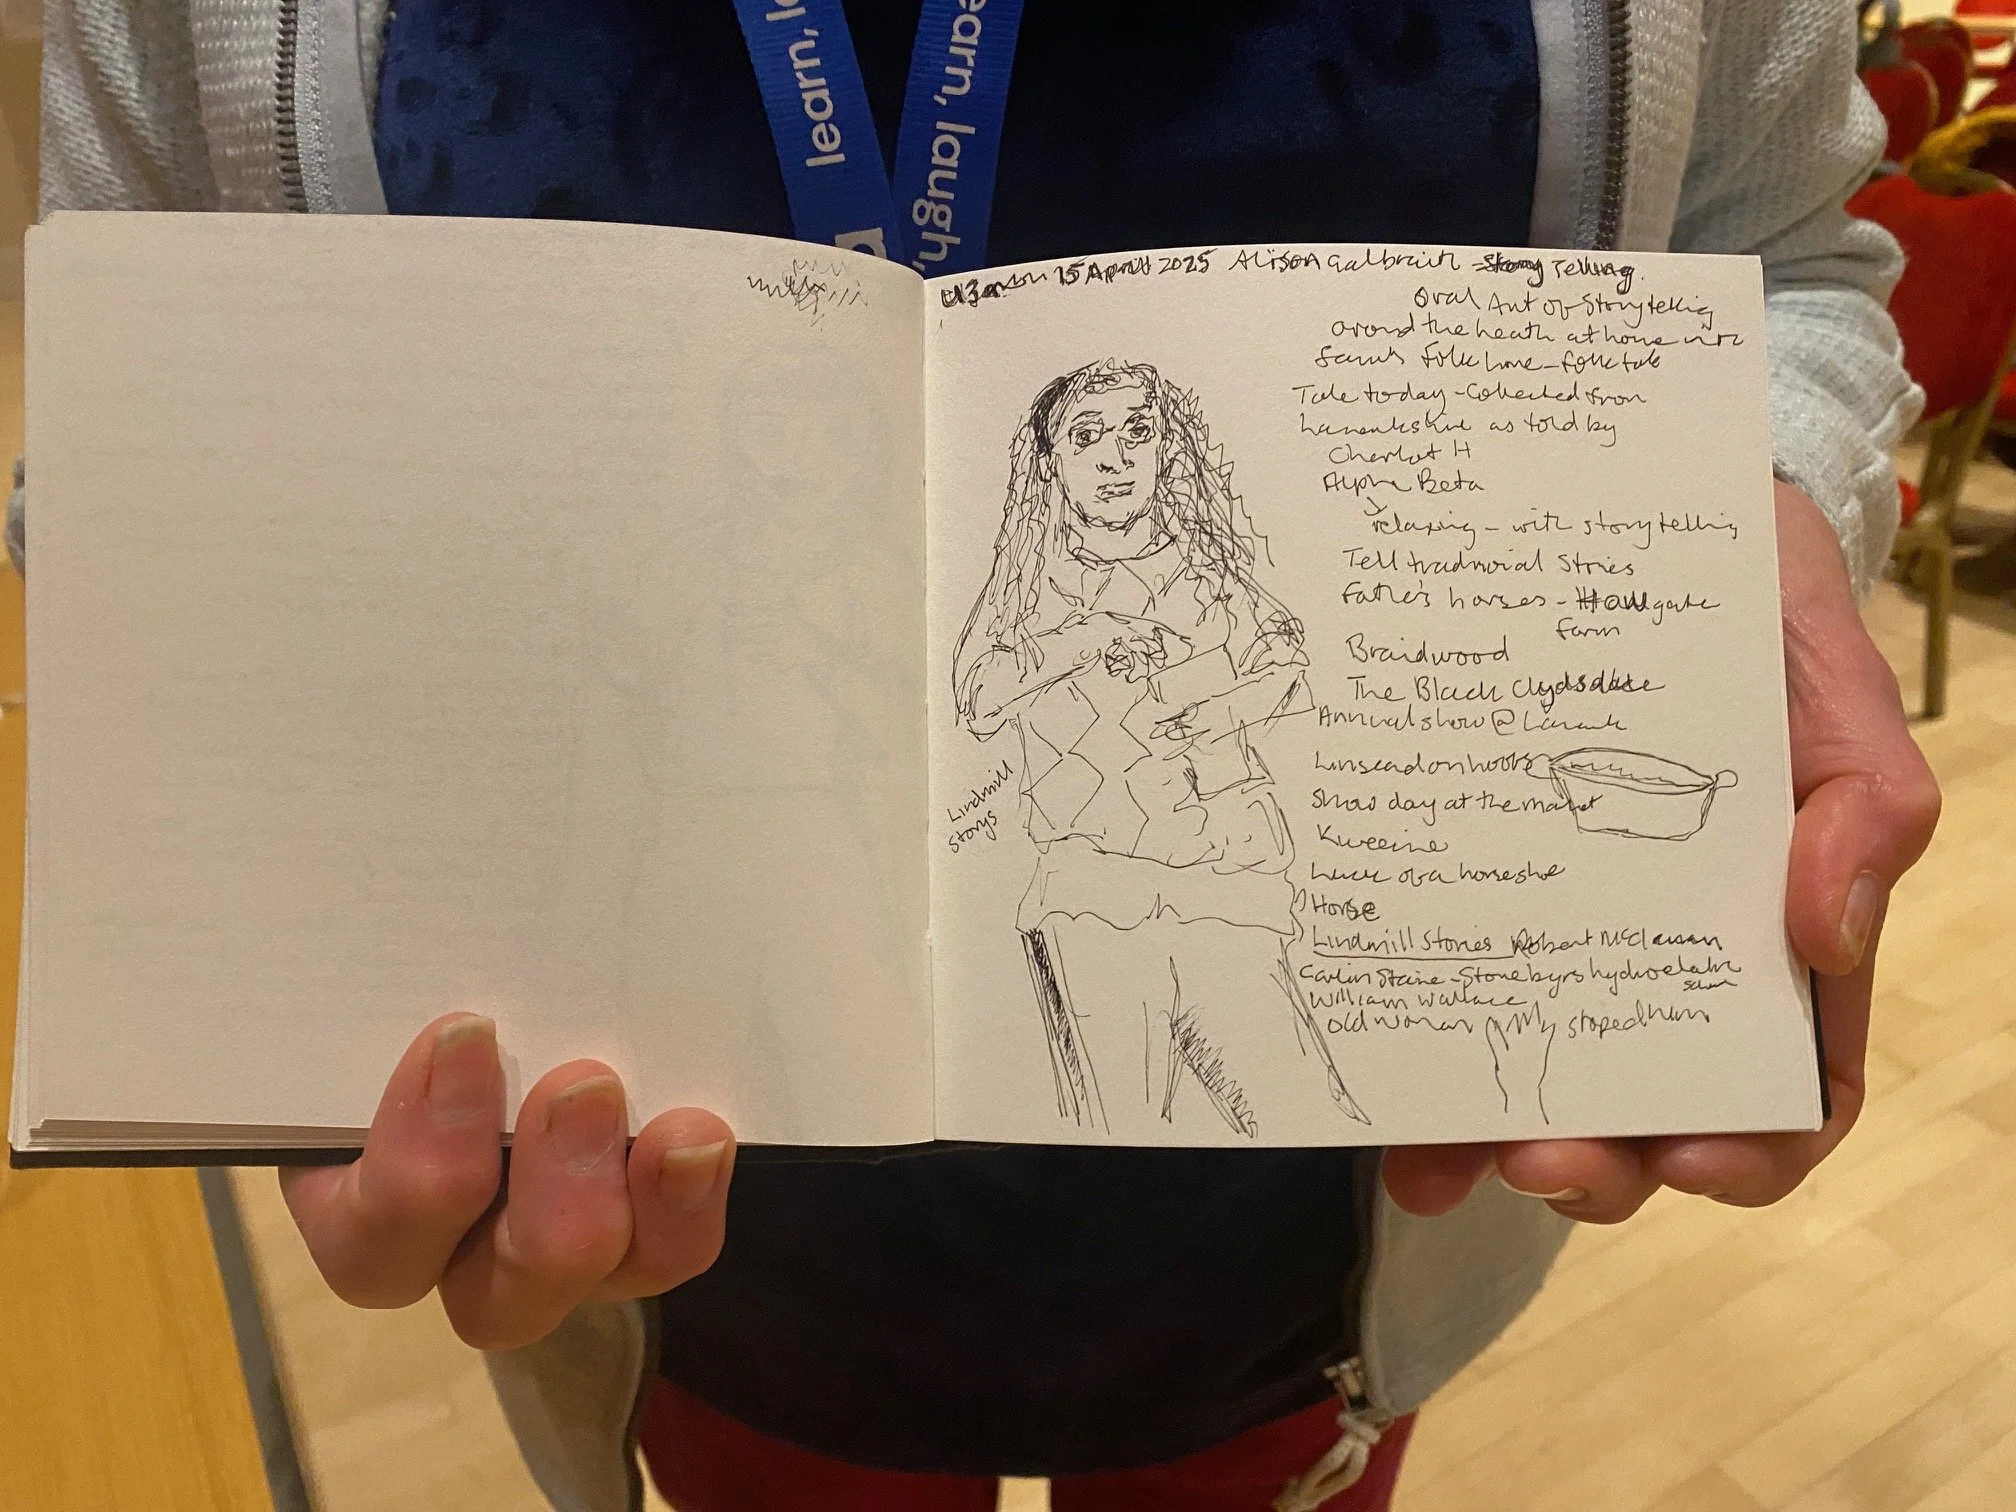 learn, l
earn, laugh,
a
u3a 15 April 2025 Alison Galbraith - Story Telling.
Oral Art of Storytelling
around the heath at home
folk lore - folk tale
Tale today - Collected from
Lanarkshire as told by
Charlot H
Alpha Beta
relaxing - with storytelling
Tell tradnoial Stries
Father's horses - Hallgate
farm
Braidwood
The Black Clydsdale
Annual show @ Lanark
Linsead on hoofs
Show day at the market
Luck of a horseshoe
Horse
Lindmill Stories Robert McClewan
Carlin Staine - Stonebyrs hydroelatric
William Wallace
old woman stoped him
Lindmill
Storys